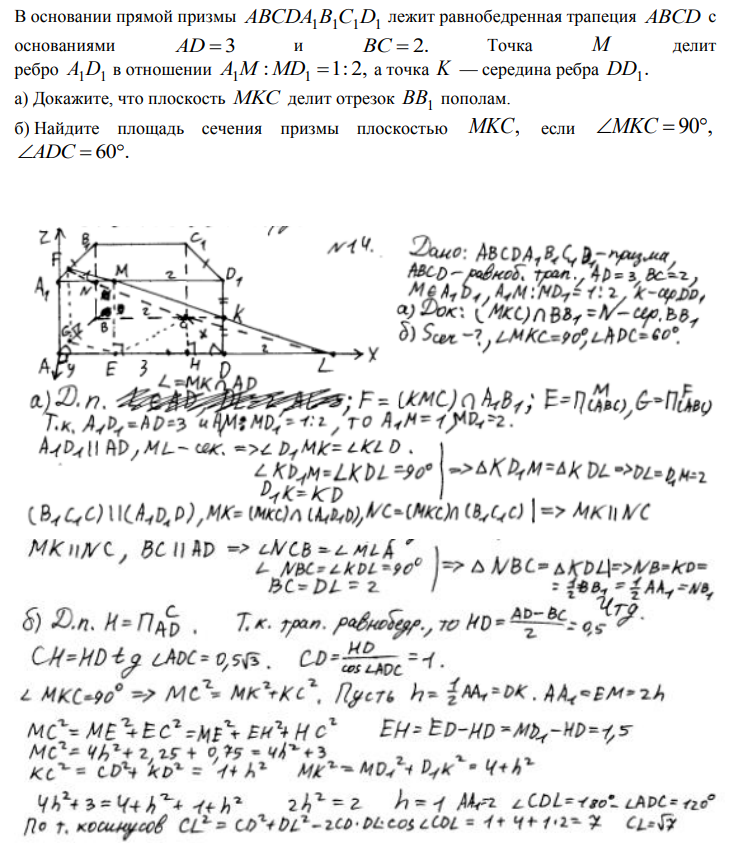 В основании прямой призмы ABCDA₁B₁C₁D₁ лежит равнобедренная трапеция ABCD с
основаниями AD = 3 и BC = 2. Точка M делит
ребро A₁D₁ в отношении A₁M : MD₁ = 1 : 2, а точка K — середина ребра DD₁.
а) Докажите, что плоскость MKC делит отрезок BB₁ пополам.
б) Найдите площадь сечения призмы плоскостью MKC, если ∠MKC = 90°,
∠ADC = 60°.
N14.
Дано: ABCDA₁B₁C₁D₁-призма,
ABCD-равноб. трап., AD=3, BC=2,
M∈A₁D₁, A₁M:MD₁=1:2, K-сер.DD₁
а) Док: (MKC)∩BB₁=N-сер. BB₁
б) Sсеч-?, ∠MKC=90°, ∠ADC=60°.
Z F B₁ C₁ A₁ N M 2 D₁
B 2 C x K
G A y E 3 H D 2 L X
L=MK∩AD
а) Д.п. ; F=(KMC)∩A₁B₁; E=П(ABC)M, G=П(ABC)F
Т.к. A₁D₁=AD=3 и A₁M:MD₁=1:2, то A₁M=1, MD₁=2.
A₁D₁||AD, ML-сек. =>∠D₁MK=∠KLD.
∠KD₁M=∠KDL=90° => ΔKD₁M=ΔKDL=>DL=D₁M=2
D₁K=KD
(B₁C₁C)||(A₁D₁D), MK=(MKC)∩(A₁D₁D), NC=(MKC)∩(B₁C₁C) | => MK||NC
MK||NC, BC||AD => ∠NCB=∠MLA
∠NBC=∠KDL=90° => ΔNBC=ΔKDL=>NB=KD=
BC=DL=2 =½BB₁=½AA₁=NB₁
Чтд.
б) Д.п. H=П AD C. Т.к. трап. равнобедр., то HD=(AD-BC)/2=0,5
CH=HD tg ∠ADC=0,5√3. CD=HD/cos∠ADC=1.
∠MKC=90° => MC²=MK²+KC². Пусть h=½AA₁=DK. AA₁=EM=2h
MC²=ME²+EC²=ME²+EH²+HC² EH=ED-HD=MD₁-HD=1,5
MC²=4h²+2,25+0,75=4h²+3
KC²=CD²+KD²=1+h² MK²=MD₁²+D₁K²=4+h²
4h²+3=4+h²+1+h² 2h²=2 h=1 AA₁=2 ∠CDL=180°-∠ADC=120°
По т. косинусов CL²=CD²+DL²-2CD·DL·cos∠CDL=1+4+1·2=7 CL=√7